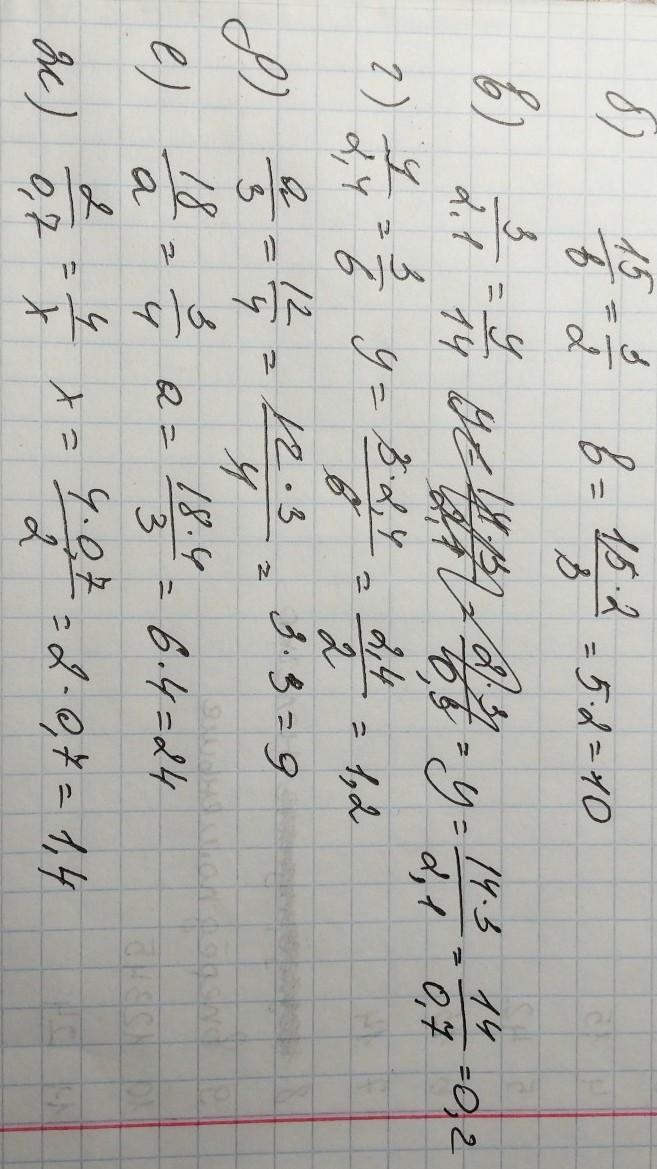 б) 15/в = 3/2 в = 15·2/3 = 5·2 = 10
в) 3/2,1 = y/14 y = 14·3/2,1 = 14/0,7 = 0,2
г) y/2,4 = 3/6 y = 3·2,4/6 = 2,4/2 = 1,2
д) a/3 = 12/4 = 12·3/4 = 3·3 = 9
е) 18/a = 3/4 a = 18·4/3 = 6·4 = 24
ж) 2/0,7 = 4/x x = 4·0,7/2 = 2·0,7 = 1,4